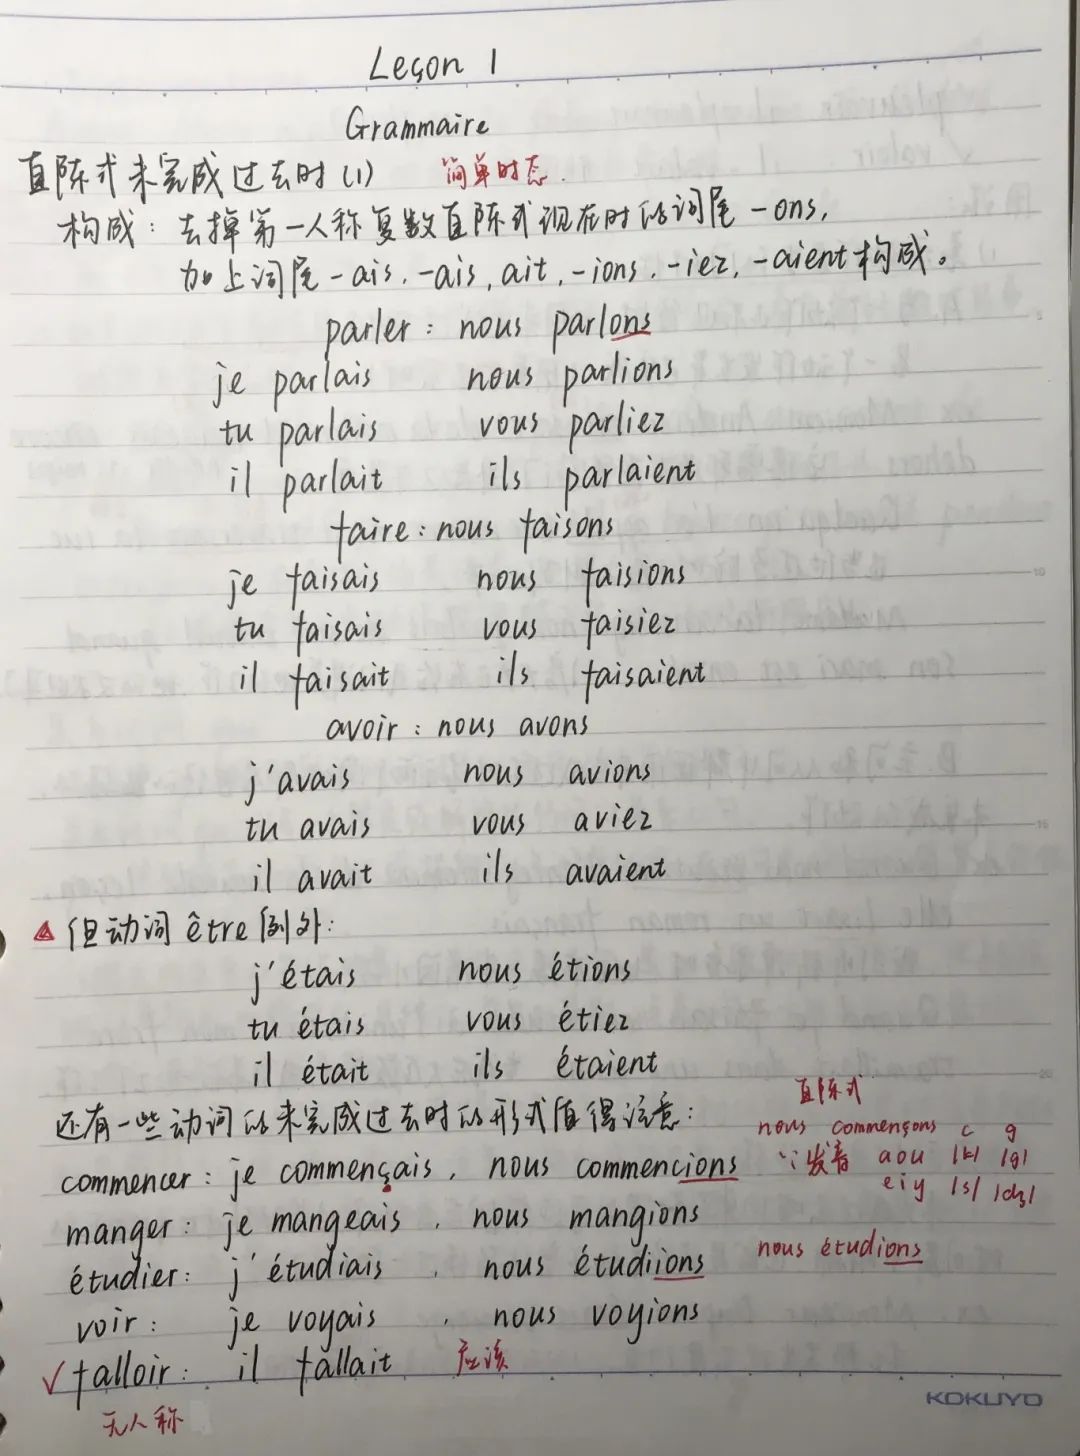 Leçon 1
Grammaire
直陈式未完成过去时(1) 简单时态.
构成: 去掉第一人称复数直陈式现在时的词尾 -ons,
加上词尾 -ais, -ais, ait, -ions, -iez, -aient构成。
parler: nous parlons
je parlais nous parlions
tu parlais vous parliez
il parlait ils parlaient
faire: nous faisons
je faisais nous faisions
tu faisais vous faisiez
il faisait ils faisaient
avoir: nous avons
j'avais nous avions
tu avais vous aviez
il avait ils avaient
但动词 être 例外:
j'étais nous étions
tu étais vous étiez
il était ils étaient
直陈式
还有一些动词的未完成过去时的形式值得注意:
nous commençons c g
∵发音 aou |k| |g|
eiy |s| |dʒ|
commencer: je commençais, nous commencions
manger: je mangeais, nous mangions
étudier: j'étudiais, nous étudiions nous étudions
voir: je voyais, nous voyions
✓falloir: il fallait 应该
无人称
KOKUYO